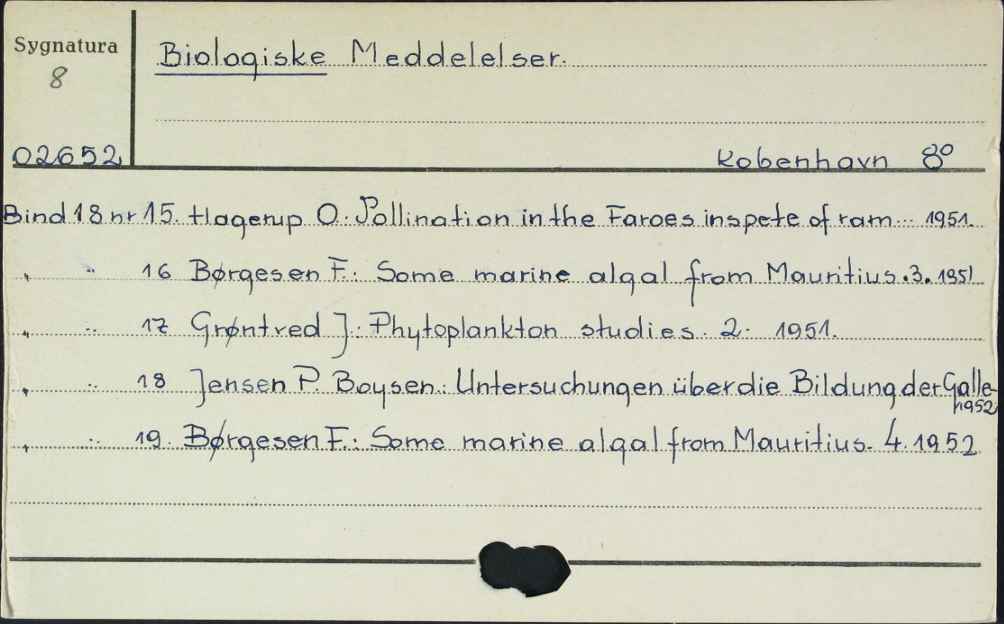 Sygnatura
8
02652
Biologiske Meddelelser.
Kobenhavn 8°
Bind 18 nr 15. Hagerup O. Pollination in the Faroes inspete of ram... 1951.
„ „ 16 Børgesen F.: Some marine algal from Mauritius. 3. 1951
„ „ 17 Grøntved J.: Phytoplankton studies. 2. 1951.
„ „ 18 Jensen P. Boysen.: Untersuchungen über die Bildung der Galle
1952
„ „ 19. Børgesen F.: Some marine algal from Mauritius. 4. 1952